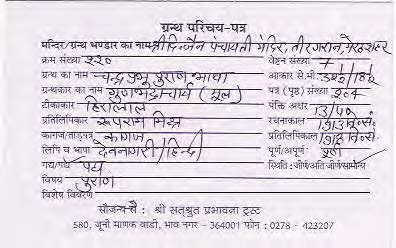 ग्रन्थ परिचय-पत्र
मन्दिर/ग्रन्थ भण्डार का नाम श्री दि. जैन पंचायती मंदिर, तीरगरान, मेरठ शहर
क्रम संख्या २२० वेष्टन संख्या 7
ग्रन्थ का नाम चन्द्रप्रभु पुराण भाषा आकार से.मी.
ग्रन्थकार का नाम गुणभद्राचार्य (मूल) पत्र (पृष्ठ) संख्या २०४
टीकाकार हिरालाल पंक्ति अक्षर 13/40
प्रतिलिपिकार रूपराम मिश्र रचनाकाल 1913 वि.सं.
कागज/ताड़पत्र कागज प्रतिलिपिकाल वि.सं.
लिपि व भाषा देवनागरी/हिन्दी पूर्ण/अपूर्ण पूर्ण
गद्य/पद्य पद्य स्थिति : जीर्ण/अति जीर्ण/सामान्य
विषय पुराण
विशेष विवरण
सौजन्य से : श्री सत्श्रुत प्रभावना ट्रस्ट
580, जूनी माणक वाडी, भाव नगर - 364001 फोन : 0278 - 423207